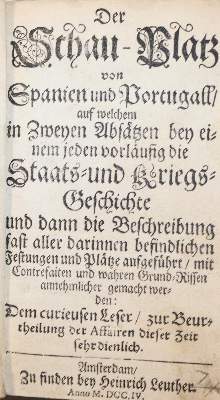 Der
Schau-Platz
von
Spanien und Portugall/
auf welchem
in Zweyen Absätzen bey ei-
nem jeden vorläufig die
Staats-und Kriegs-
Geschichte
und dann die Beschreibung
fast aller darinnen befindlichen
Festungen und Plätze aufgeführt/ mit
Contrefaiten und wahren Grund-Rissen
annehmlicher gemacht wer-
den:
Dem curieusen Leser/ zur Beur-
theilung der Affairen dieser Zeit
sehr dienlich.
Amsterdam/
Zu finden bey Heinrich Leuther.
Anno M.DCC.IV.